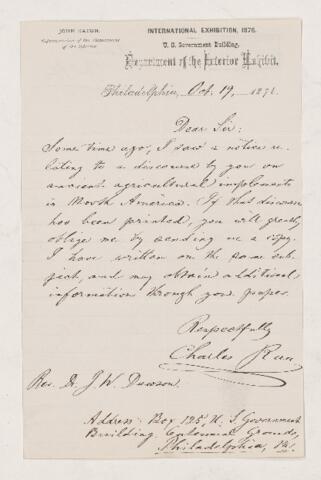 JOHN EATON,
Representative of the Department
of the Interior.
INTERNATIONAL EXHIBITION, 1876.
U. S. Government Building.
Department of the Interior Exhibit.
Philadelphia, Oct. 19, 1876.
Dear Sir:
Some time ago, I saw a notice re-
lating to a discourse by you on
ancient agricultural implements
in North America. If that discourse
has been printed, you will greatly
oblige me by sending me a copy.
I have written on the same sub-
ject, and may obtain additional
information through your paper.
Respectfully
Charles Rau
Rev. Dr. J. W. Dawson.
Address: Box 125, U. S. Government
Building, Centennial Grounds,
Philadelphia, Pa.